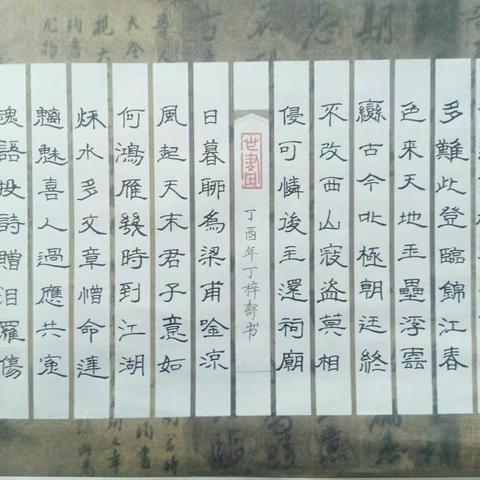 多難此登臨錦江春
色來天地玉壘浮雲
變古今北極朝廷終
不改西山寇盜莫相
侵可憐後主還祠廟
丁酉年丁梓书
日暮聊為梁甫吟涼
風起天末君子意如
何鴻雁幾時到江湖
秋水多文章憎命達
魑魅喜人過應共冤
魂語投詩贈汨羅傷